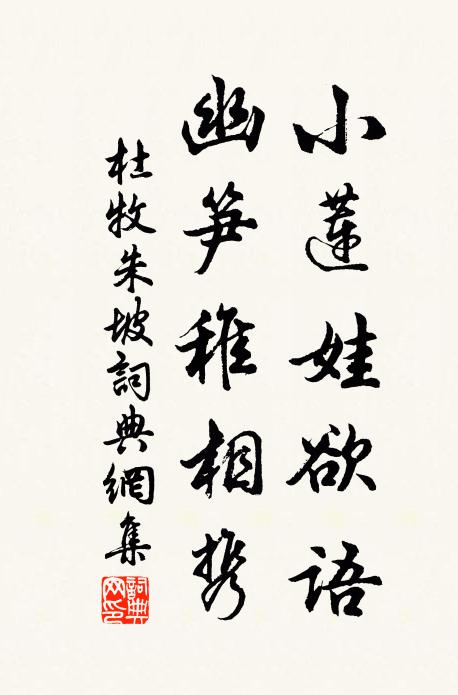 小蓮娃欲語
幽笋稚相携
杜牧朱坡詞典網集
詞典網印